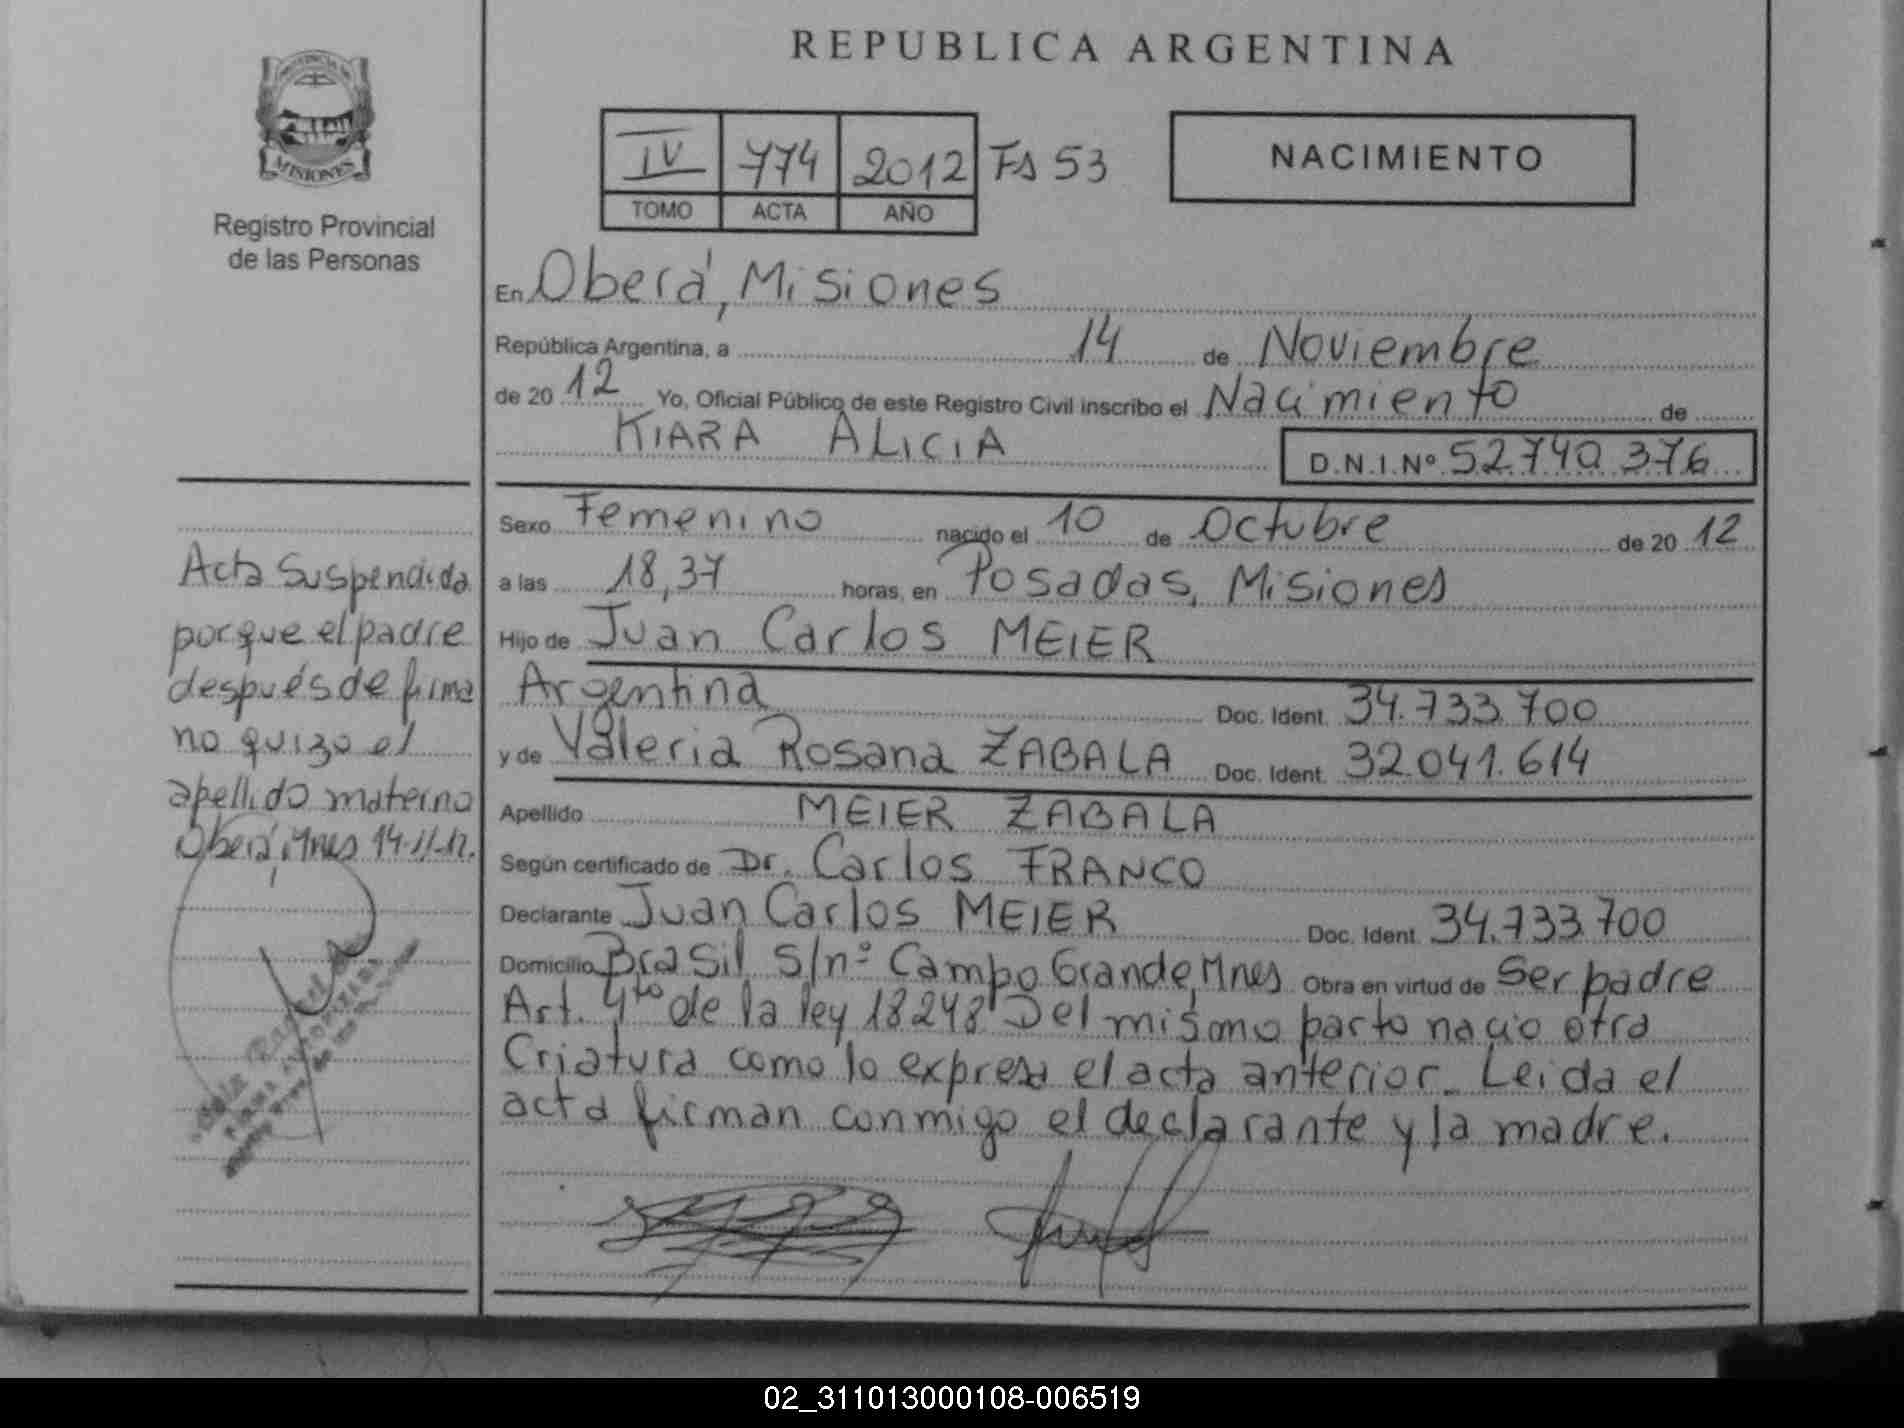 REPUBLICA ARGENTINA
PROVINCIA DE
MISIONES
Registro Provincial
de las Personas
IV 774 2012 Fs 53
TOMO ACTA AÑO
NACIMIENTO
En Oberá, Misiones
República Argentina, a 14 de Noviembre
de 2012 Yo, Oficial Público de este Registro Civil inscribo el Nacimiento de
KIARA ALICIA D.N.I.Nº 52.740.376
Sexo Femenino nacido el 10 de Octubre de 2012
a las 18,37 horas, en Posadas, Misiones
Hijo de Juan Carlos MEIER
Argentina Doc. Ident. 34.733.700
y de Valeria Rosana ZABALA Doc. Ident. 32.041.614
Apellido MEIER ZABALA
Según certificado de Dr. Carlos FRANCO
Declarante Juan Carlos MEIER Doc. Ident. 34.733.700
Domicilio Brasil s/nº Campo Grande, Mnes Obra en virtud de Ser padre
Art. 4to de la ley 18248 Del mismo parto nacio otra
Criatura como lo expresa el acta anterior. Leida el
acta firman conmigo el declarante y la madre.
Acta Suspendida
porque el padre
después de firma
no quizo el
apellido materno
Oberá, Mnes 14-11-12.
02_311013000108-006519